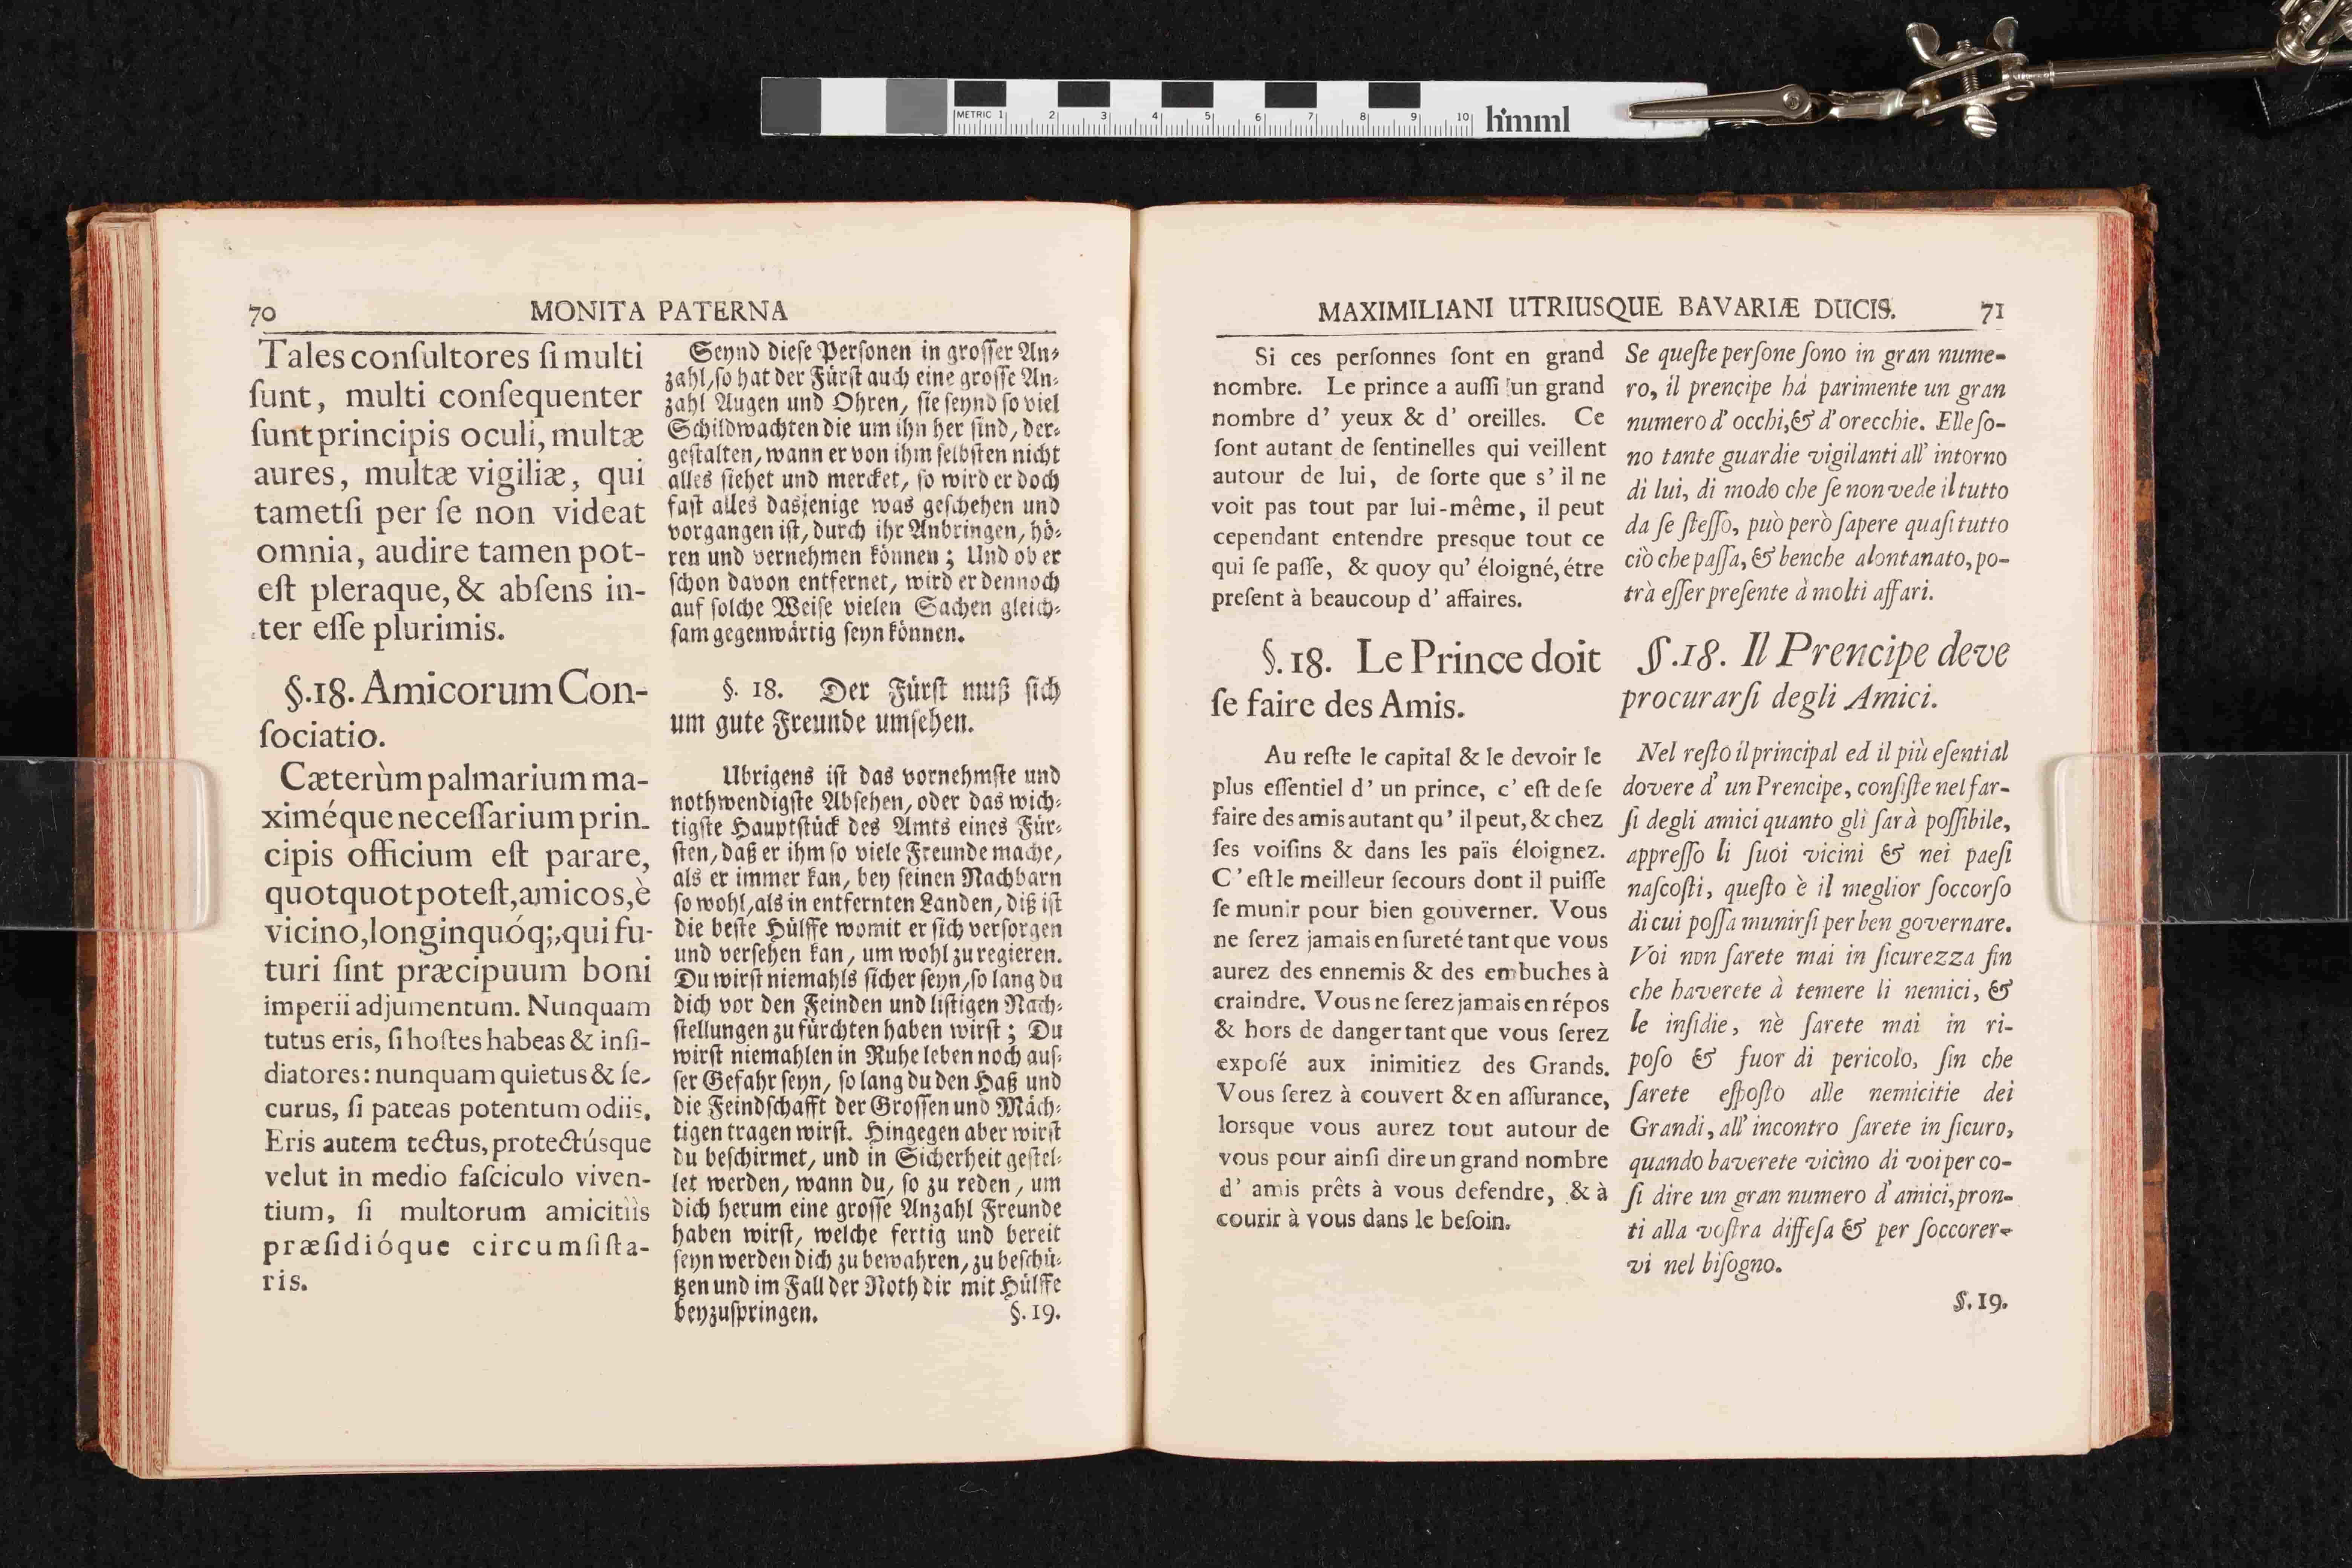 METRIC 1 2 3 4 5 6 7 8 9 10 hmml
70 MONITA PATERNA
Tales conſultores ſi multi
ſunt, multi conſequenter
ſunt principis oculi, multæ
aures, multæ vigiliæ, qui
tametſi per ſe non videat
omnia, audire tamen pot-
eſt pleraque, & abſens in-
ter eſſe plurimis.
§.18. Amicorum Con-
ſociatio.
Cæterùm palmarium ma-
ximéque neceſſarium prin-
cipis officium eſt parare,
quotquot poteſt, amicos, è
vicino, longinquóq;, qui fu-
turi ſint præcipuum boni
imperii adjumentum. Nunquam
tutus eris, ſi hoſtes habeas & inſi-
diatores: nunquam quietus & ſe-
curus, ſi pateas potentum odiis.
Eris autem tectus, protectúsque
velut in medio faſciculo viven-
tium, ſi multorum amicitiis
præſidióque circumſiſta-
ris.
Seynd dieſe Perſonen in groſſer An-
zahl, ſo hat der Fürſt auch eine groſſe An-
zahl Augen und Ohren, ſie ſeynd ſo viel
Schildwachten die um ihn her ſind, der-
geſtalten, wann er von ihm ſelbſten nicht
alles ſiehet und mercket, ſo wird er doch
faſt alles dasjenige was geſchehen und
vorgangen iſt, durch ihr Anbringen, hö-
ren und vernehmen können; Und ob er
ſchon davon entfernet, wird er dennoch
auf ſolche Weiſe vielen Sachen gleich-
ſam gegenwärtig ſeyn können.
§. 18. Der Fürſt muß ſich
um gute Freunde umſehen.
Ubrigens iſt das vornehmſte und
nothwendigſte Abſehen, oder das wich-
tigſte Hauptſtück des Amts eines Für-
ſten, daß er ihm ſo viele Freunde mache,
als er immer kan, bey ſeinen Nachbarn
ſo wohl, als in entfernten Landen, diß iſt
die beſte Hülffe womit er ſich verſorgen
und verſehen kan, um wohl zu regieren.
Du wirſt niemahls ſicher ſeyn, ſo lang du
dich vor den Feinden und liſtigen Nach-
ſtellungen zu fürchten haben wirſt; Du
wirſt niemahlen in Ruhe leben noch auſ-
ſer Gefahr ſeyn, ſo lang du den Haß und
die Feindſchafft der Groſſen und Mäch-
tigen tragen wirſt. Hingegen aber wirſt
du beſchirmet, und in Sicherheit geſtel-
let werden, wann du, ſo zu reden, um
dich herum eine groſſe Anzahl Freunde
haben wirſt, welche fertig und bereit
ſeyn werden dich zu bewahren, zu beſchü-
tzen und im Fall der Noth dir mit Hülffe
beyzuſpringen. §. 19.
MAXIMILIANI UTRIUSQUE BAVARIÆ DUCIS. 71
Si ces perſonnes ſont en grand
nombre. Le prince a auſſi un grand
nombre d' yeux & d' oreilles. Ce
ſont autant de ſentinelles qui veillent
autour de lui, de ſorte que s' il ne
voit pas tout par lui-même, il peut
cependant entendre presque tout ce
qui ſe paſſe, & quoy qu' éloigné, étre
preſent à beaucoup d' affaires.
§.18. Le Prince doit
ſe faire des Amis.
Au reſte le capital & le devoir le
plus eſſentiel d' un prince, c' eſt de ſe
faire des amis autant qu' il peut, & chez
ſes voiſins & dans les païs éloignez.
C' eſt le meilleur ſecours dont il puiſſe
ſe munir pour bien gouverner. Vous
ne ſerez jamais en ſureté tant que vous
aurez des ennemis & des embuches à
craindre. Vous ne ſerez jamais en répos
& hors de danger tant que vous ſerez
expoſé aux inimitiez des Grands.
Vous ſerez à couvert & en aſſurance,
lorsque vous aurez tout autour de
vous pour ainſi dire un grand nombre
d' amis prêts à vous defendre, & à
courir à vous dans le beſoin.
Se queſte perſone ſono in gran nume-
ro, il prencipe há parimente un gran
numero d' occhi, & d' orecchie. Elle ſo-
no tante guardie vigilanti all' intorno
di lui, di modo che ſe non vede il tutto
da ſe ſteſſo, può però ſapere quaſi tutto
ciò che paſſa, & benche alontanato, po-
trà eſſer preſente à molti affari.
§.18. Il Prencipe deve
procurarſi degli Amici.
Nel reſto il principal ed il più eſential
dovere d' un Prencipe, conſiſte nel far-
ſi degli amici quanto gli ſarà poſſibile,
appreſſo li ſuoi vicini & nei paeſi
naſcoſti, queſto è il meglior ſoccorſo
di cui poſſa munirſi per ben governare.
Voi non ſarete mai in ſicurezza fin
che haverete à temere li nemici, &
le inſidie, nè ſarete mai in ri-
poſo & fuor di pericolo, fin che
ſarete eſpoſto alle nemicitie dei
Grandi, all' incontro ſarete in ſicuro,
quando baverete vicino di voi per co-
ſi dire un gran numero d' amici, pron-
ti alla voſtra diffeſa & per ſoccorer-
vi nel biſogno.
§. 19.